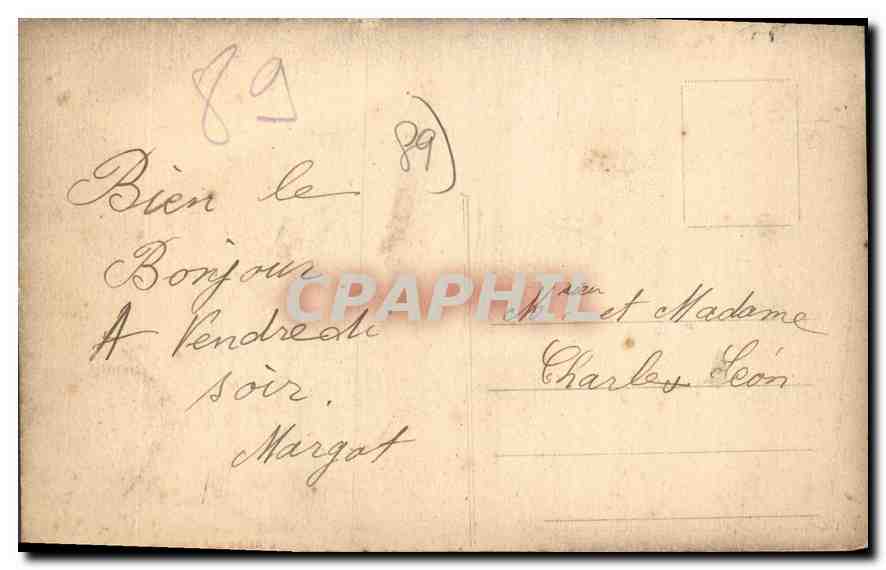 89
89)
Bien le
Bonjour
A Vendredi
soir.
Margot
CPARPHIL
Msieur et Madame
Charles Léon